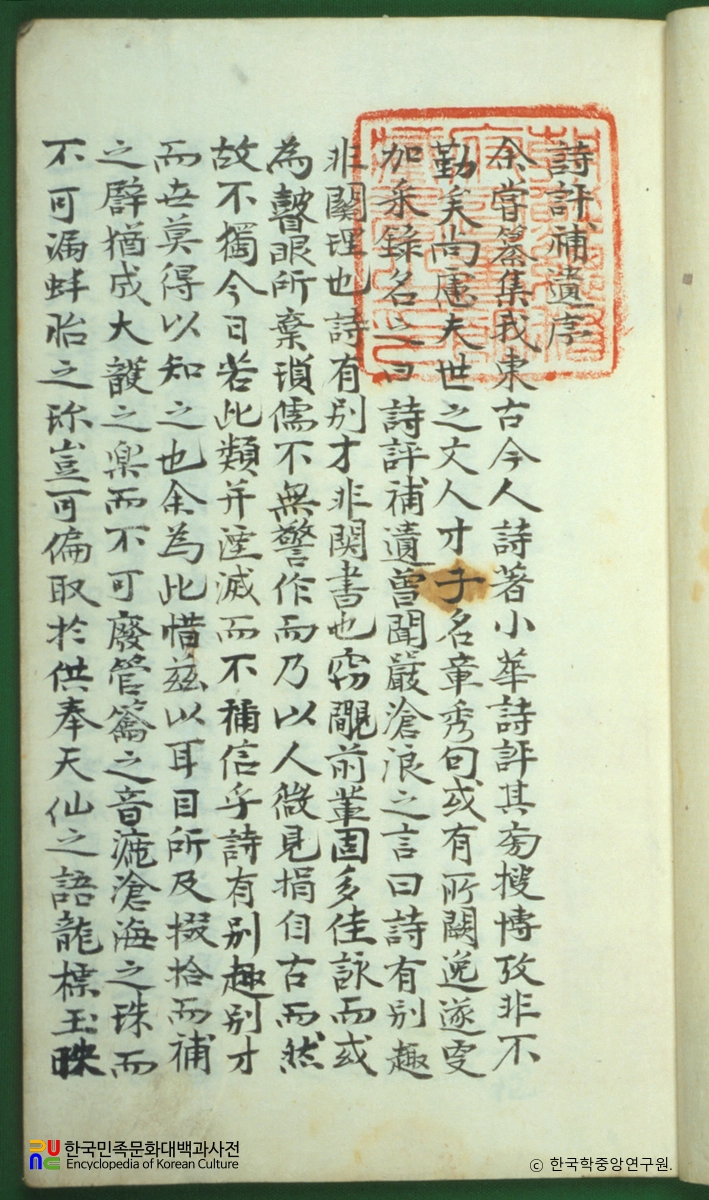 詩評補遺序
余嘗纂集我東古今人詩著小華詩評其旁搜博攷非不
勤矣尚慮夫世之文人才子名章秀句或有所闕逸遂更
加采錄名之曰詩評補遺曾聞嚴滄浪之言曰詩有別趣
非關理也詩有別才非関書也窃覵前輩固多佳詠而或
為瞽眼所棄瑣儒不無警作而乃以人微見捐自古而然
故不獨今日若此類并湮滅而不稱信乎詩有别趣别才
而世莫得以知之也余為此惜茲以耳目所及掇拾而補
之辟猶成大頀之樂而不可廢管籥之音漉滄海之珠而
不可漏蚌胎之珎豈可偏取於供奉天仙之語龍標玉映
한국민족문화대백과사전
Encyclopedia of Korean Culture
© 한국학중앙연구원.